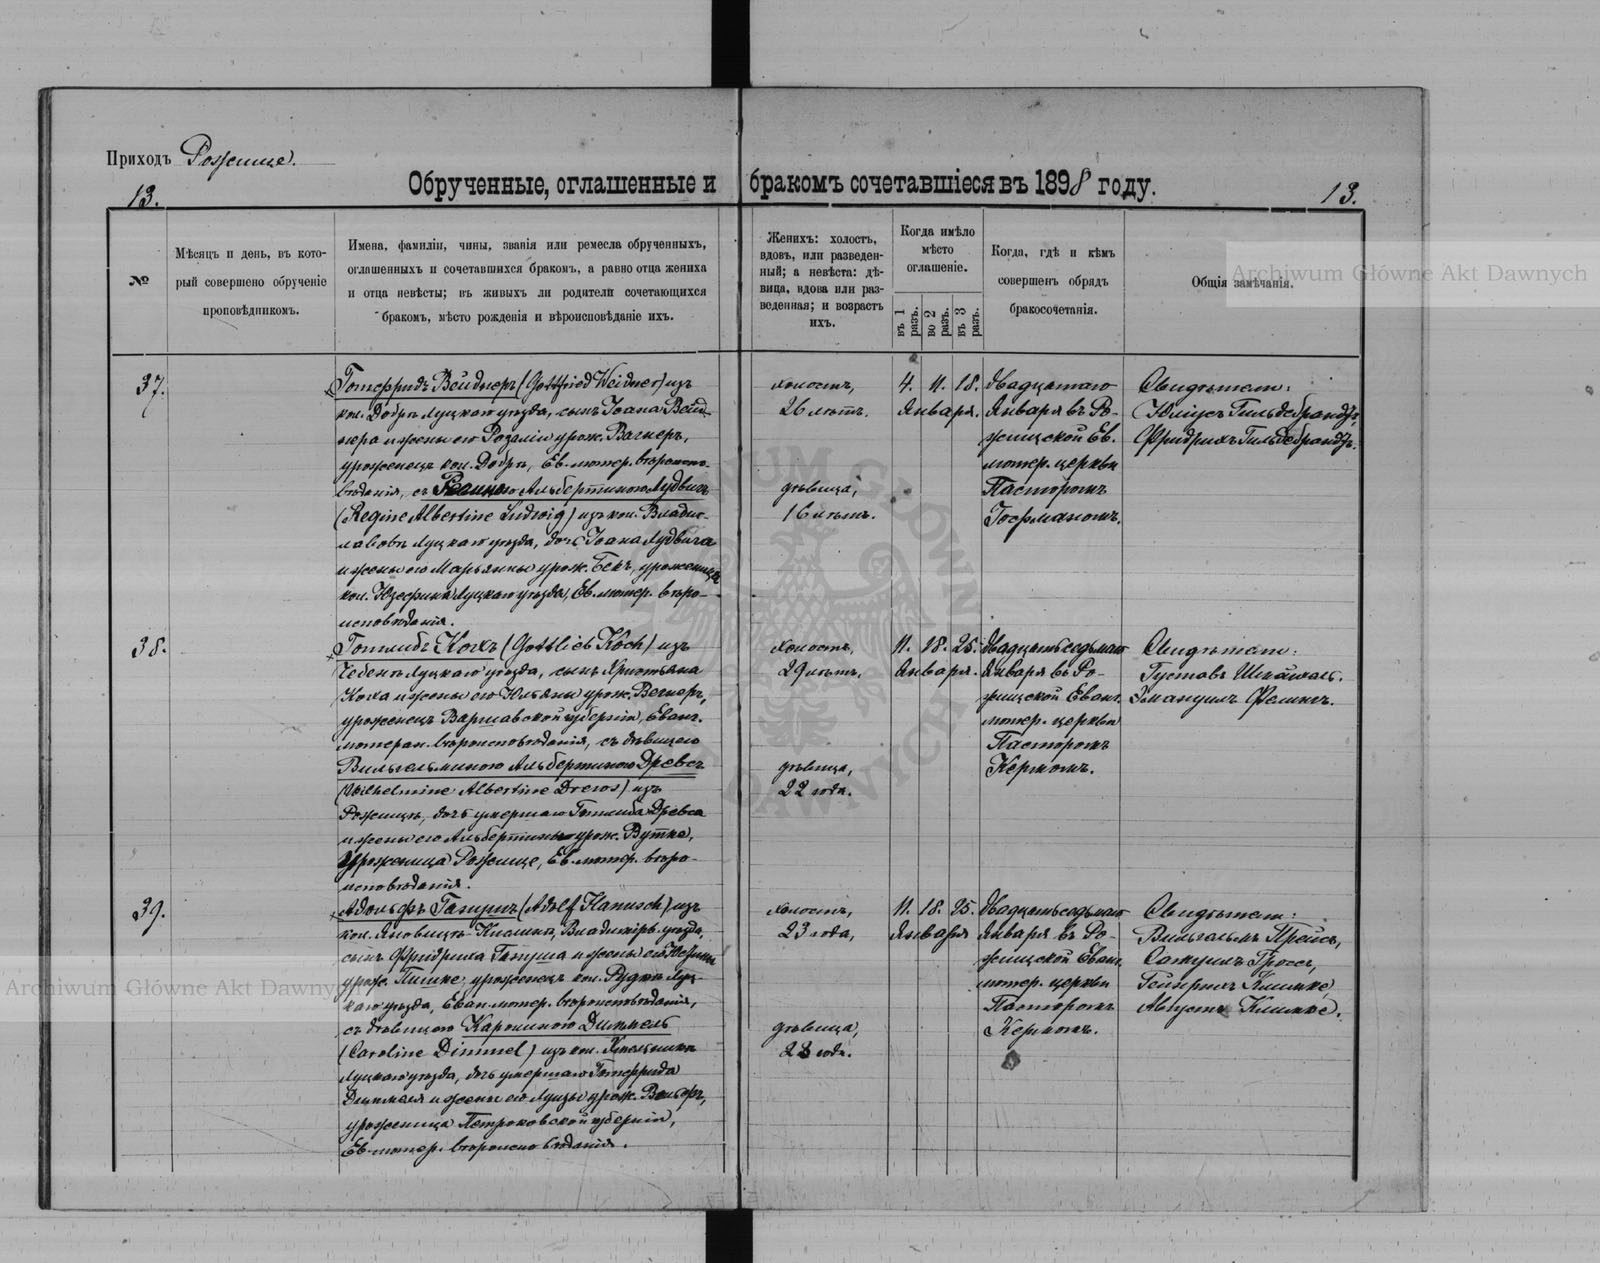 Приходъ Рожище.
13.
Обрученные, оглашенные и бракомъ сочетавшіеся въ 1898 году.
13.
№
Мѣсяцъ и день, въ кото-
рый совершено обрученіе
проповѣдникомъ.
Имена, фамиліи, чины, званія или ремесла обрученныхъ,
оглашенныхъ и сочетавшихся бракомъ, а равно отца жениха
и отца невѣсты; въ живыхъ ли родители сочетающихся
бракомъ, мѣсто рожденія и вѣроисповѣданіе ихъ.
Женихъ: холостъ,
вдовъ, или разведен-
ный; а невѣста: дѣ-
вица, вдова или раз-
веденная; и возрастъ
ихъ.
Когда имѣло
мѣсто
оглашеніе.
въ 1 разъ.
во 2 разъ.
въ 3 разъ.
Когда, гдѣ и кѣмъ
совершенъ обрядъ
бракосочетанія.
Общія замѣчанія.
37.
Готфридъ Вейднеръ (Gottfried Weidner) изъ
кол. Добре Луцкаго уѣзда, сынъ Іоана Вейд-
нера и жены его Розаліи урож. Вагнеръ,
уроженецъ кол. Добре, Ев. лютер. вѣроиспо-
вѣданія, съ Региною Альбертиною Лудвигъ
(Regine Albertine Ludwig) изъ кол. Владис-
лавовъ Луцкаго уѣзда, дочь Іоана Лудвига
и жены его Марьянны урож. Бекъ, уроженица
кол. Юзефинъ Луцкаго уѣзда, Ев. лютер. вѣро-
исповѣданія.
холостъ,
26 лѣтъ.
дѣвица,
16 лѣтъ.
4. 11. 18.
Января.
Двадцатаго
Января въ Ро-
жищской Ев.
лютер. церкви
Пасторомъ
Гофманомъ.
Свидѣтели:
Юліусъ Гильдебрандъ,
Фридрихъ Гильдебрандъ.
38.
Готлибъ Кохъ (Gottlieb Koch) изъ
Луцкаго уѣзда, сынъ Христьяна
Коха и жены его Юльяны урож. Вегнеръ,
уроженецъ Варшавской губерніи, Еванг.
лютеран. вѣроисповѣданія, съ дѣвицею
Вильгельминою Альбертиною Древсъ
(Wilhelmine Albertine Drews) изъ
Рожище, дочь умершаго Готлиба Древса
и жены его Альбертины урож. Вутке,
Уроженица Рожище, Ев. лютер. вѣро-
исповѣданія.
холостъ,
29 лѣтъ.
дѣвица,
22 года.
11. 18. 25.
Января.
Двадцатьседьмаго
Января въ Ро-
жищской Еванг.
лютер. церкви
Пасторомъ
Кермомъ.
Свидѣтели:
Густавъ
Эмануилъ
39.
Адольфъ Ганушъ (Adolf Hanusch) изъ
кол. Яновецъ Владимір. уѣзда,
сынъ Фридриха Гануша и жены его
урож. уроженецъ кол. Рудня Луц-
каго уѣзда, Еван. лютер. вѣроисповѣданія,
съ дѣвицею Каролиною Диммель
(Caroline Dimmel) изъ кол.
Луцкаго уѣзда, дочь умершаго Готфрида
Диммеля и жены его Луизы урож. Вольфъ,
уроженица Петроковской губерніи,
Ев. лютер. вѣроисповѣданія.
холостъ,
23 года,
дѣвица,
23 года.
11. 18. 25.
Января
Двадцатьседьмаго
Января въ Ро-
жищской Еванг.
лютер. церкви
Пасторомъ
Кермомъ.
Свидѣтели:
Вильгельмъ Прейсъ,
Самуилъ Гроссъ,
Гейнрихъ Климке,
Августъ Климке.
Archiwum Główne Akt Dawnych
Archiwum Główne Akt Dawnych
ARCHIWUM GŁÓWNE AKT DAWNYCH